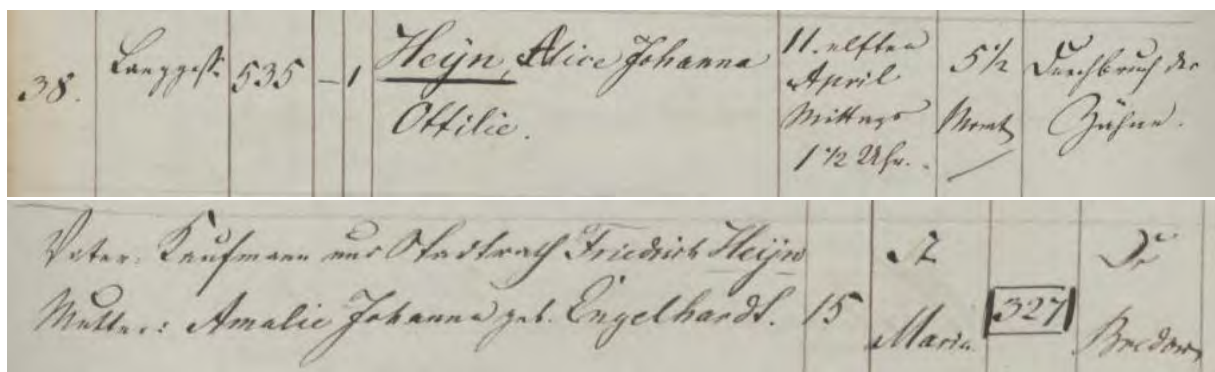 38. Langgasse 535 – 1 Heÿn, Alice Johanna Ottilie. 11. elften April Mittags 1 1/2 Uhr. 5 1/2 Monat Durchbruch der Zähne.
Vater: Kaufmann und Stadtrath Friedrich Heÿn
Mutter: Amalie Johanna geb. Engelhardt. 15 St Maria 327 Dr Bredow